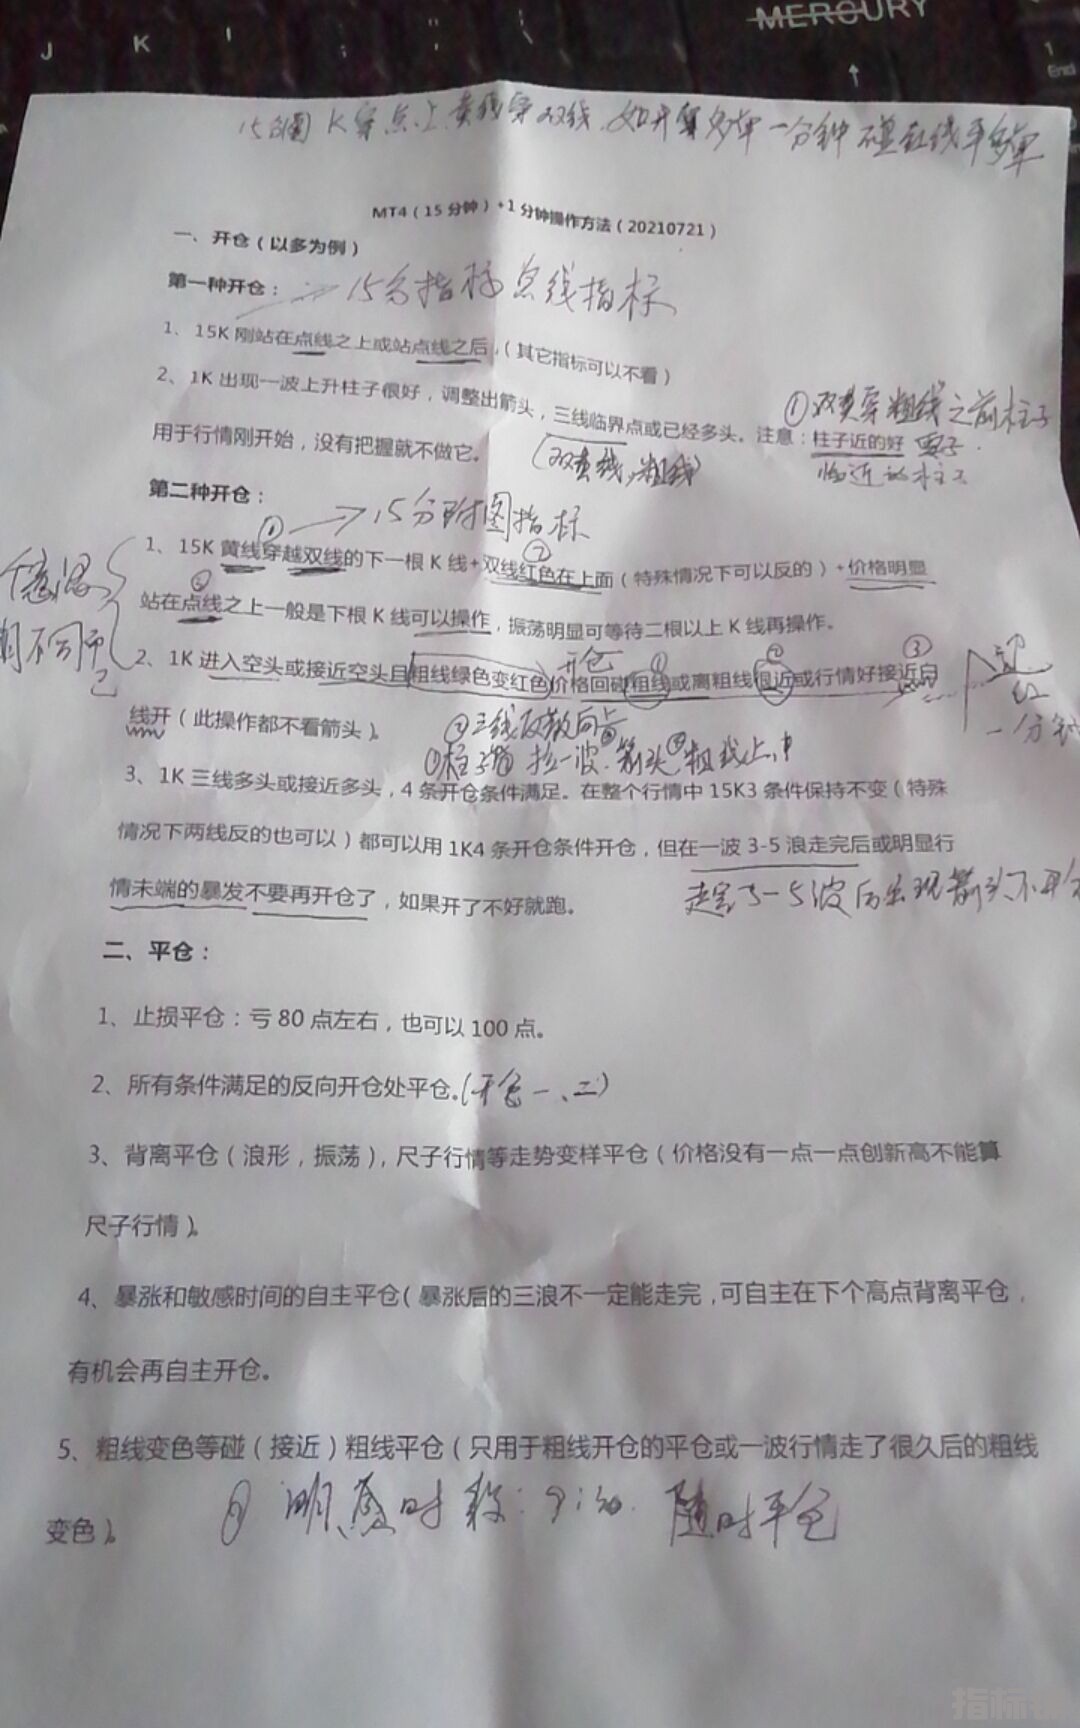 MERCURY
J K I ; "
1
End
15分图 K 穿点上 黄线穿双线 如开多单一分钟碰红线平多单
MT4（15分钟）+1分钟操作方法（20210721）
一、开仓（以多为例）
第一种开仓： 15分指标 点线指标
1、15K 刚站在点线之上或站点线之后，（其它指标可以不看）
2、1K 出现一波上升柱子很好，调整出箭头，三线临界点或已经多头。注意：柱子近的好
①双黄穿粗线之前柱子
用于行情刚开始，没有把握就不做它。 （双黄线，粗线） 临近的柱子
第二种开仓： 15分附图指标
1、15K 黄线穿越双线的下一根 K 线+双线红色在上面（特殊情况下可以反的）+价格明显
① ②
站在点线之上一般是下根 K 线可以操作，振荡明显可等待二根以上 K 线再操作。
③
2、1K 进入空头或接近空头且粗线绿色变红色价格回碰粗线或离粗线很近或行情好接近白
开仓 ① ② ③
线开（此操作都不看箭头）。
红
一分钟
3、1K 三线多头或接近多头，4 条开仓条件满足。在整个行情中 15K3 条件保持不变（特殊
情况下两线反的也可以）都可以用 1K4 条开仓条件开仓，但在一波 3-5 浪走完后或明显行
情末端的暴发不要再开仓了，如果开了不好就跑。 走完3-5波后出现箭头不开仓
二、平仓：
1、止损平仓：亏 80 点左右，也可以 100 点。
2、所有条件满足的反向开仓处平仓。（开仓一、二）
3、背离平仓（浪形，振荡），尺子行情等走势变样平仓（价格没有一点一点创新高不能算
尺子行情）。
4、暴涨和敏感时间的自主平仓（暴涨后的三浪不一定能走完，可自主在下个高点背离平仓，
有机会再自主开仓。
5、粗线变色等碰（接近）粗线平仓（只用于粗线开仓的平仓或一波行情走了很久后的粗线
变色）。 随时平仓
指标